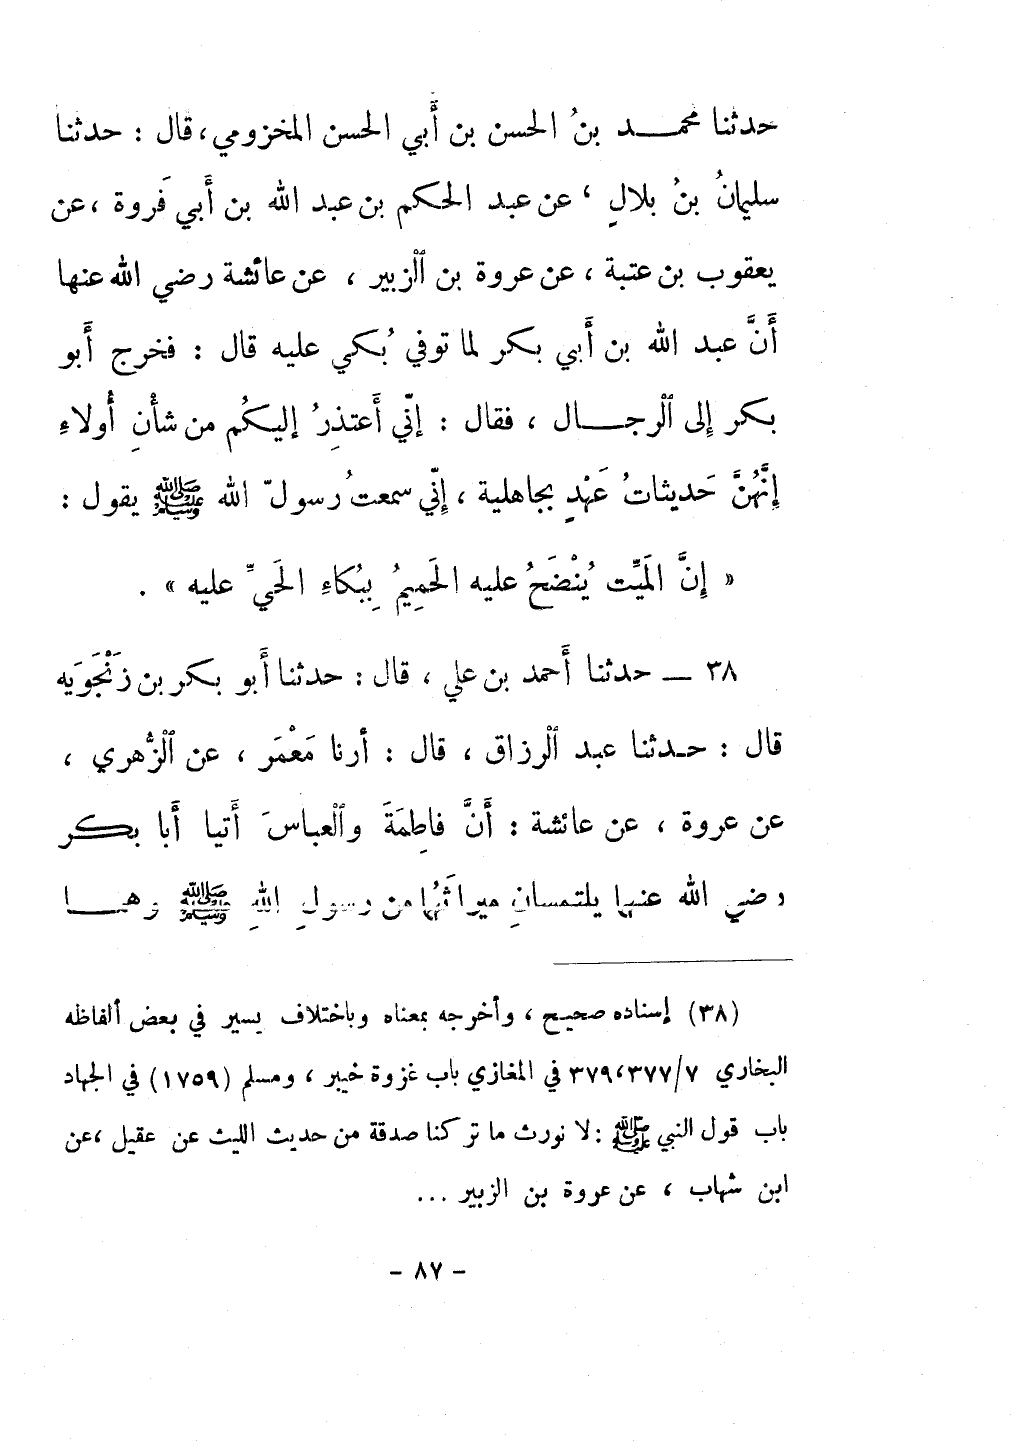 حدثنا محمـــد بنُ الحسن بن أَبي الحسن المخزومي، قال : حدثنا
سليمانُ بنُ بلالٍ ، عن عبد الحكم بن عبد الله بن أَبي فَروة ، عن
يعقوب بن عتبة ، عن عروة بن ٱلزبير ، عن عائشة رضي الله عنها
أَنَّ عبد الله بن أَبي بكر لما توفي بُكي عليه قال : فخرج أَبو
بكر إِلى ٱلرجـــال ، فقال : إنّي أَعتذِرُ إليكُم من شأْنِ أُولاءِ
إِنَّهُنَّ حَديثاتُ عَهْدٍ بجاهلية ، إنّي سمعتُ رسولَ الله ﷺ يقول :
« إِنَّ الَميِّت يُنْضَحُ عليه الحَمِيمُ بِبُكاءِ الحَيِّ عليه » .
٣٨ ـ حدثنا أَحمد بن علي ، قال : حدثنا أَبو بكر بن زَنْجَوَيه
قال : حـدثنا عبد ٱلرزاق ، قال : أرنا مَعْمَر ، عن ٱلزُّهري ،
عن عروة ، عن عائشة : أَنَّ فاطِمَةَ وٱلعباسَ أَتيا أَبا بكر
رضي الله عنهما يلتمسانِ ميراثَهُما من رسولِ اللهِ ﷺ وهمـــا
(٣٨) إسناده صحيح ، وأخرجه بمعناه وباختلاف يسير في بعض ألفاظه
البخاري ٣٧٧/٧،٣٧٩ في المغازي باب غزوة خيبر ، ومسلم (١٧٥٩) في الجهاد
باب قول النبي ﷺ : لا نورث ما تركنا صدقة من حديث الليث عن عقيل ،عن
ابن شهاب ، عن عروة بن الزبير ...
- ٨٧ -